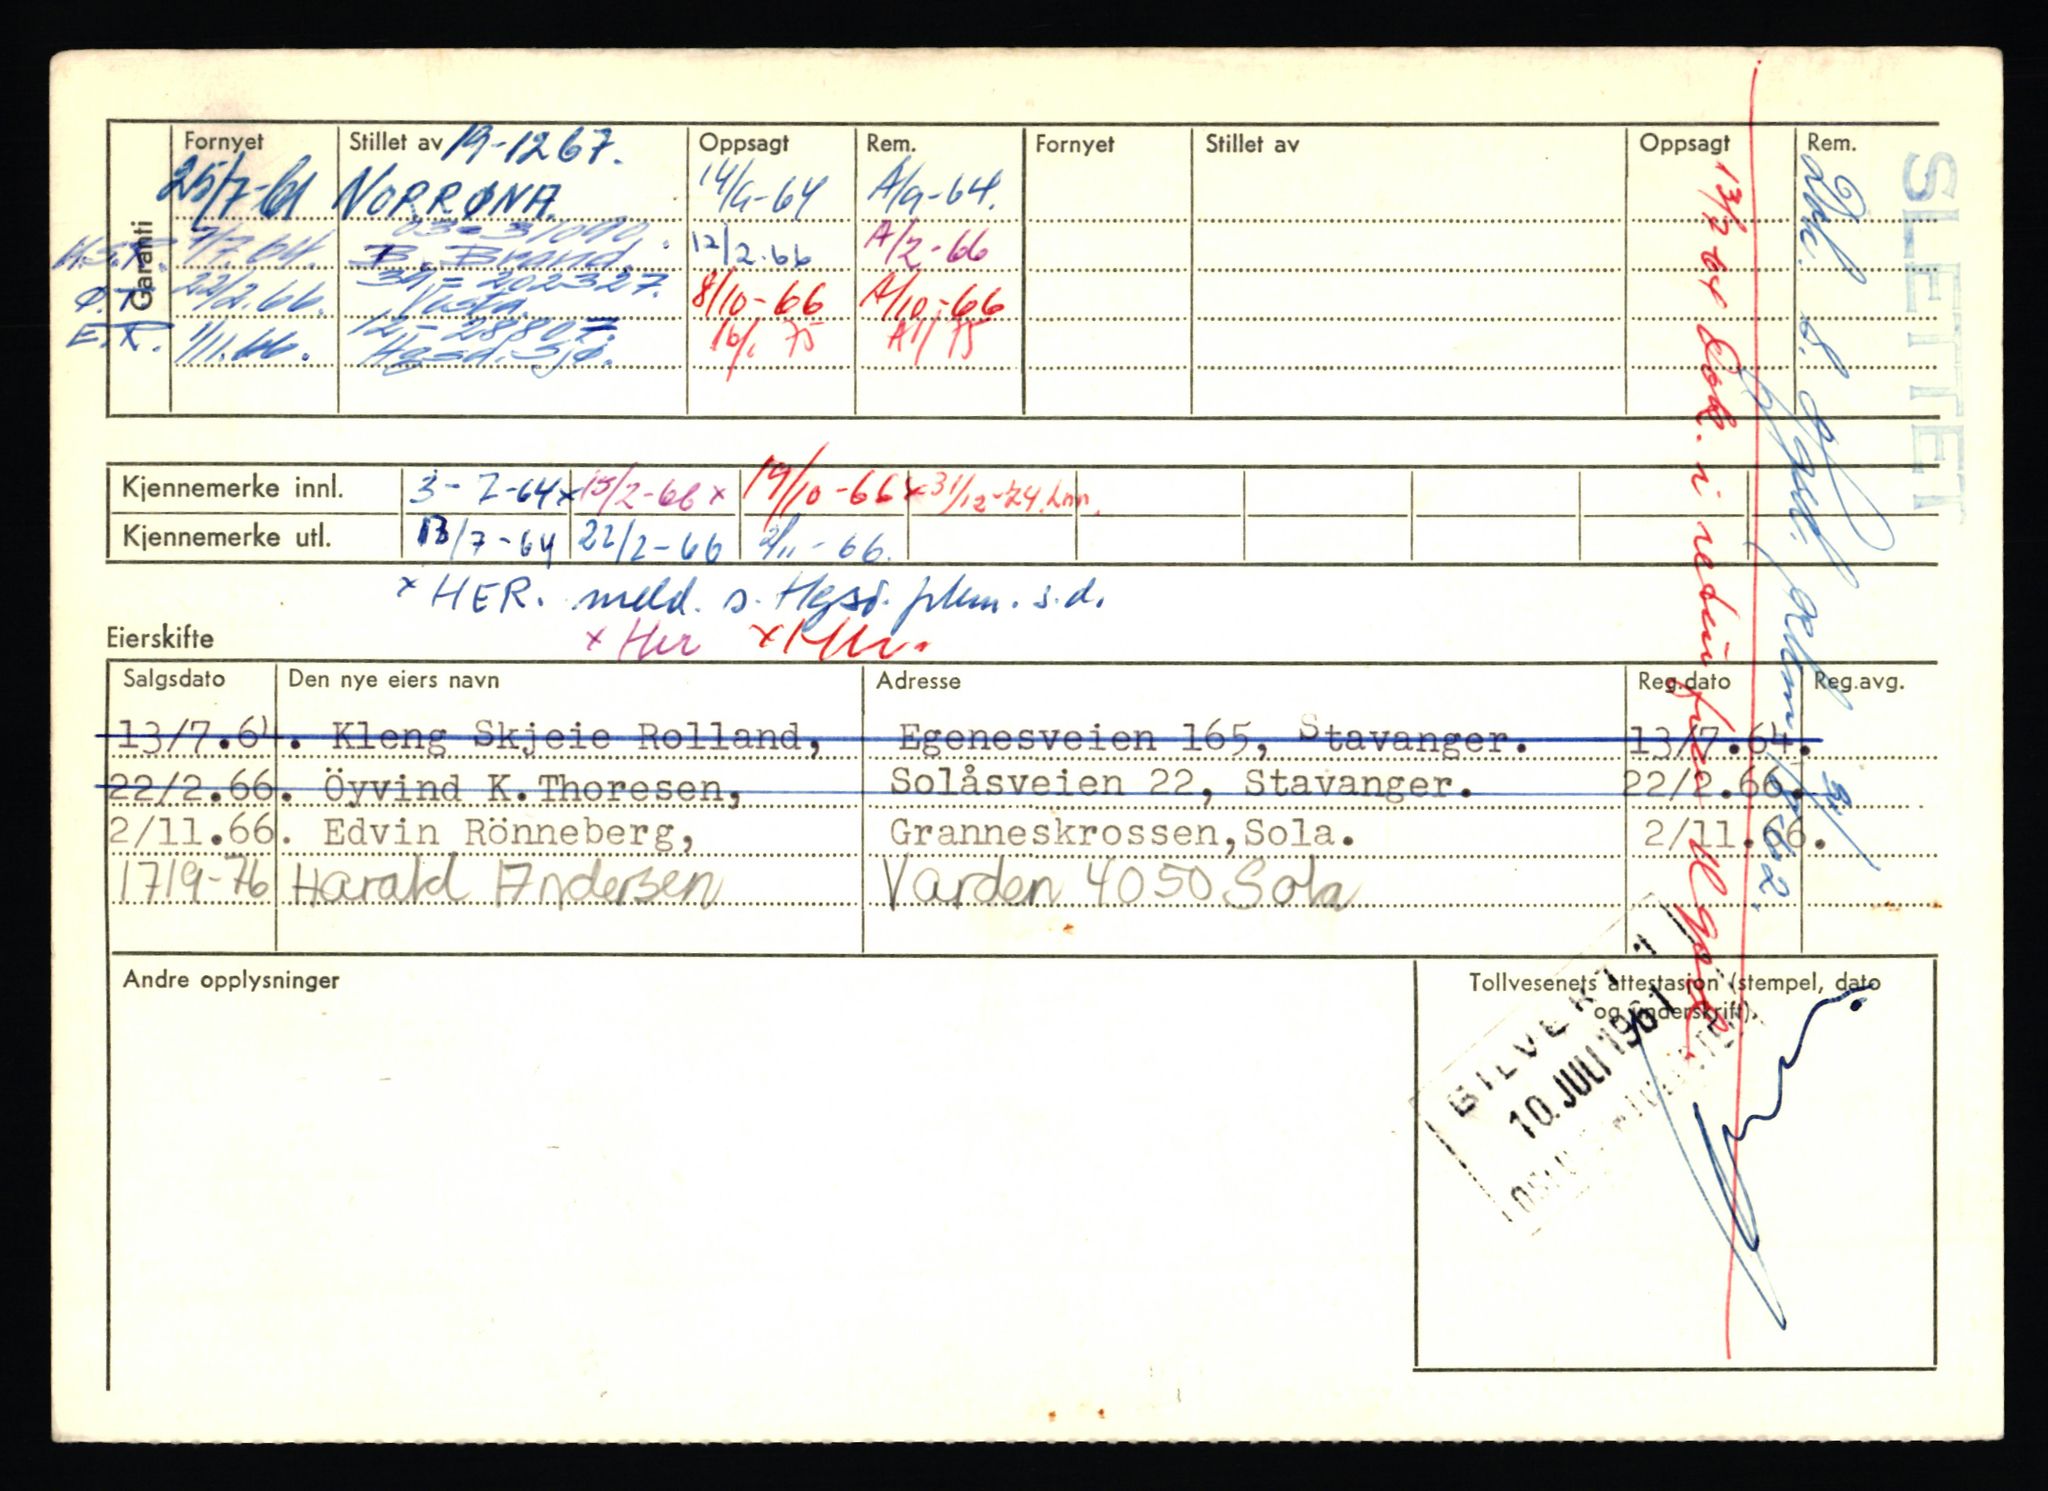 Garanti
Fornyet Stillet av 19-1267. Oppsagt Rem. Fornyet Stillet av Oppsagt Rem.
25/7-61 NORRØNA. 14/9-64 A/9-64.
7/7.64. 03-31090. B. Brand. 12/2.66 A/2-66
Ø.T. 22/2.66. 34-202327. Vesta. 8/10-66 A/10-66
E.R. 1/11.66. 12-28807. Hgsd. Sjø. 16/1 75 A1/75
Kjennemerke innl. 3-7-64 x 15/2-66 x 19/10-66 x 31/12-74.
Kjennemerke utl. 13/7-64 22/2-66 2/11-66.
x HER. meld. s. s.d.
x Her x Her.
Eierskifte
Salgsdato Den nye eiers navn Adresse Reg.dato Reg.avg.
13/7.64. Kleng Skjeie Rolland, Egenesveien 165, Stavanger. 13/7.64.
22/2.66. Öyvind K.Thoresen, Solåsveien 22, Stavanger. 22/2.66.
2/11.66. Edvin Rönneberg, Granneskrossen,Sola. 2/11.66.
17/9-76 Harald Andersen Varden 4050 Sola
Andre opplysninger
Tollvesenets attestasjon (stempel, dato
og underskrift).
10. JULI 1961
SLETTET